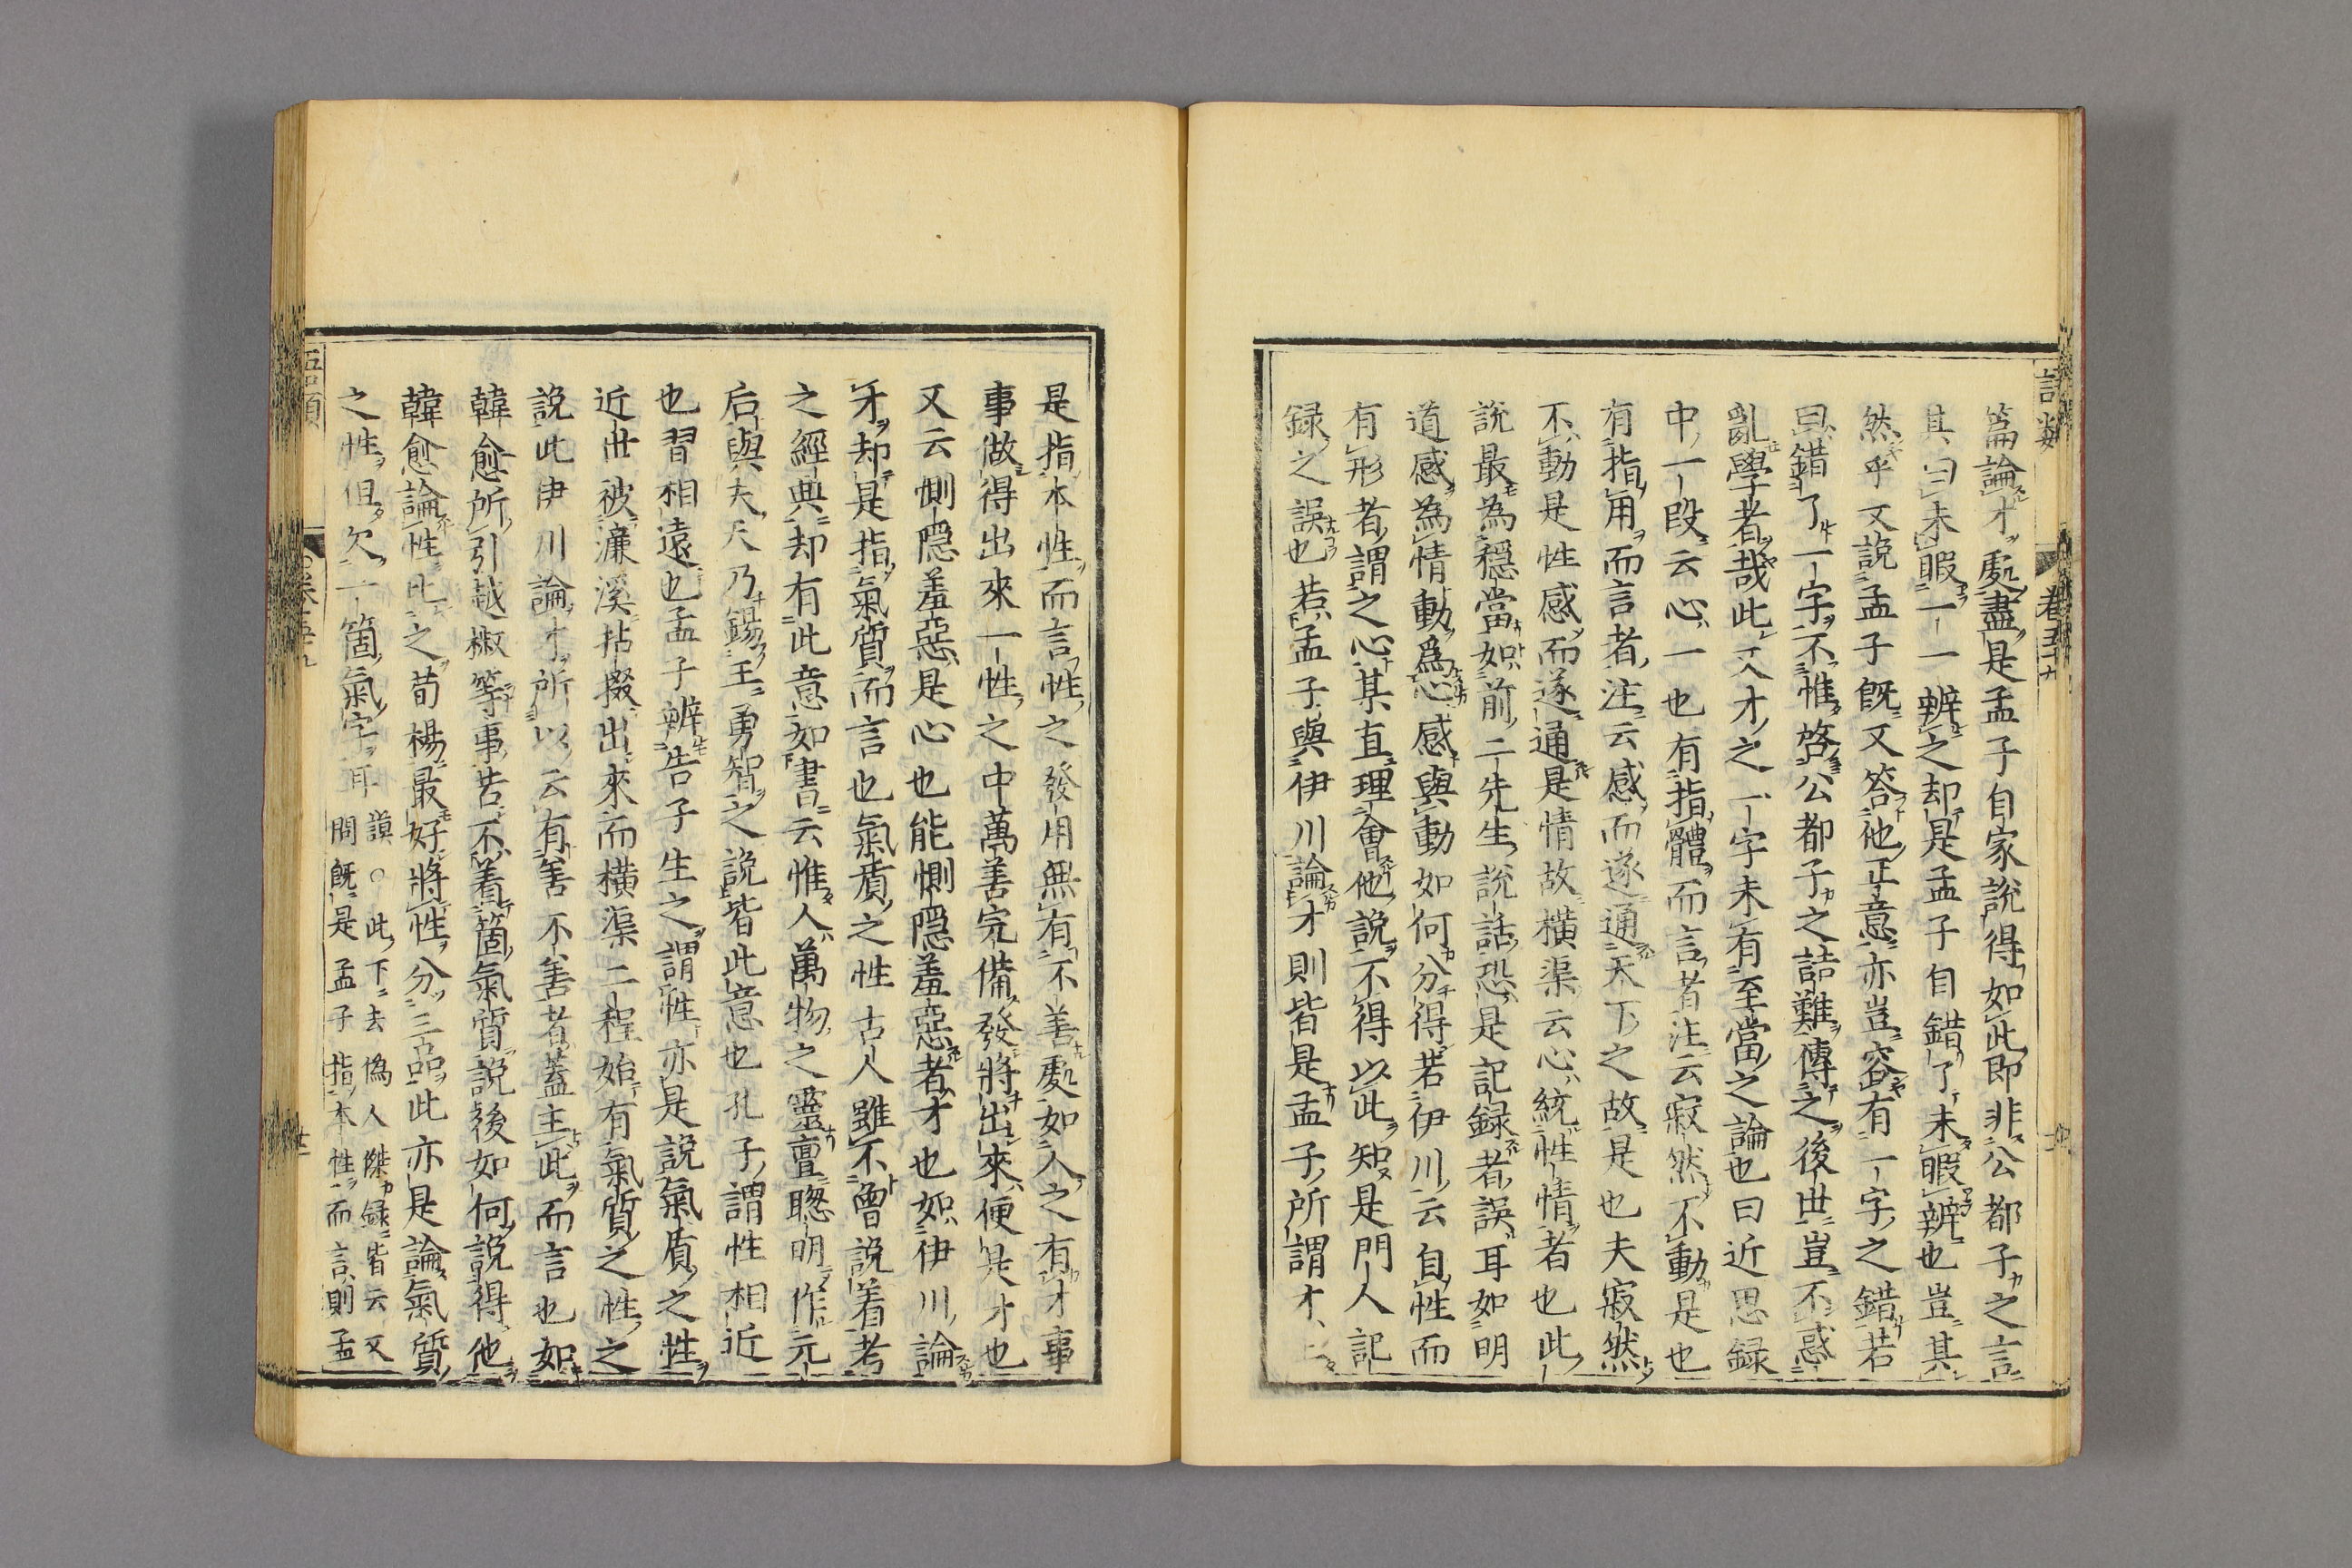 語類 卷五十九
篇論才處盡是孟子自家說得如此即非公都子之言
其曰未暇一一辨之却是孟子自錯了未暇辨也豈其
然乎又說孟子既又答他正意亦豈容有一字之錯若
曰錯了一字不惟啓公都子之詰難傳之後世豈不惑
亂學者哉此又才之一字未有至當之論也曰近思録
中一段云心一也有指體而言者注云寂然不動是也
有指用而言者注云感而遂通天下之故是也夫寂然
不動是性感而遂通是情故橫渠云心統性情者也此
說最為穩當如前二先生說話恐是記録者誤耳如明
道感為情動爲心感與動如何分得若伊川云自性而
有形者謂之心某直理會他說不得以此知是門人記
録之誤也若孟子與伊川論才則皆是孟子所謂才止
是指本性而言性之發用無有不善處如人之有才事
事做得出來一性之中萬善完備發將出來便是才也
又云惻隠羞惡是心也能惻隠羞惡者才也如伊川論
才却是指氣質而言也氣質之性古人雖不曾說着考
之經典却有此意如書云惟人萬物之靈亶聰明作元
后與夫天乃錫王勇智之說皆此意也孔子謂性相近
也習相遠也孟子辨告子生之謂性亦是說氣質之性
近世被濂溪拈掇出來而橫渠二程始有氣質之性之
說此伊川論才所以云有善不善者蓋主此而言也如
韓愈所引越椒等事若不着箇氣質說後如何說得他
韓愈論性比之荀楊最好將性分三品此亦是論氣質
之性但欠一箇氣字耳
謨○此下去僞人傑録皆云又
問既是孟子指本性而言則孟
語類 卷五十九